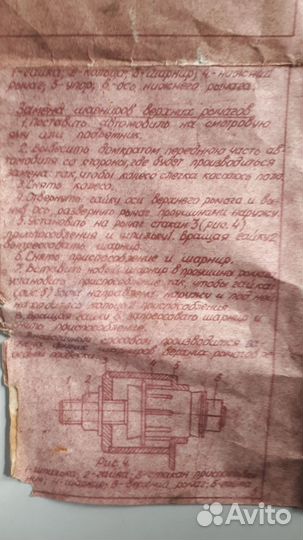 1-гайка; 2-кольцо; 3-шарнир; 4-нижний
рычаг; 5-упор; 6-ось нижнего рычага.
Замена шарниров верхних рычагов
1. Поставить автомобиль на смотровую
яму или подъемник.
2. Вывесить домкратом переднюю часть ав-
томобиля со стороны, где будет производиться
замена так, чтобы колесо слегка касалось пола.
3. Снять колесо.
4. Отвернуть гайку оси верхнего рычага и вы-
ось, развернуть рычаг проушинами наружу.
5. Установить на рычаг стакан 3 (рис. 4)
приспособления и шпильку 1. Вращая гайку 2
выпрессовать шарнир.
6. Снять приспособление и шарнир.
7. Вставить новый шарнир в проушину рычага,
установить приспособление так, чтобы гайка
была направлена наружу и под ней
находилась
вращая гайку 2 запрессовать шарнир и
снять приспособление.
способом производится
шарниров верхних рычагов
1 2 3 4 5 6
Рис. 4
1-шпилька; 2-гайка; 3-стакан приспособле-
ния; 4-шарнир; 5-верхний рычаг; 6-гайка
Avito